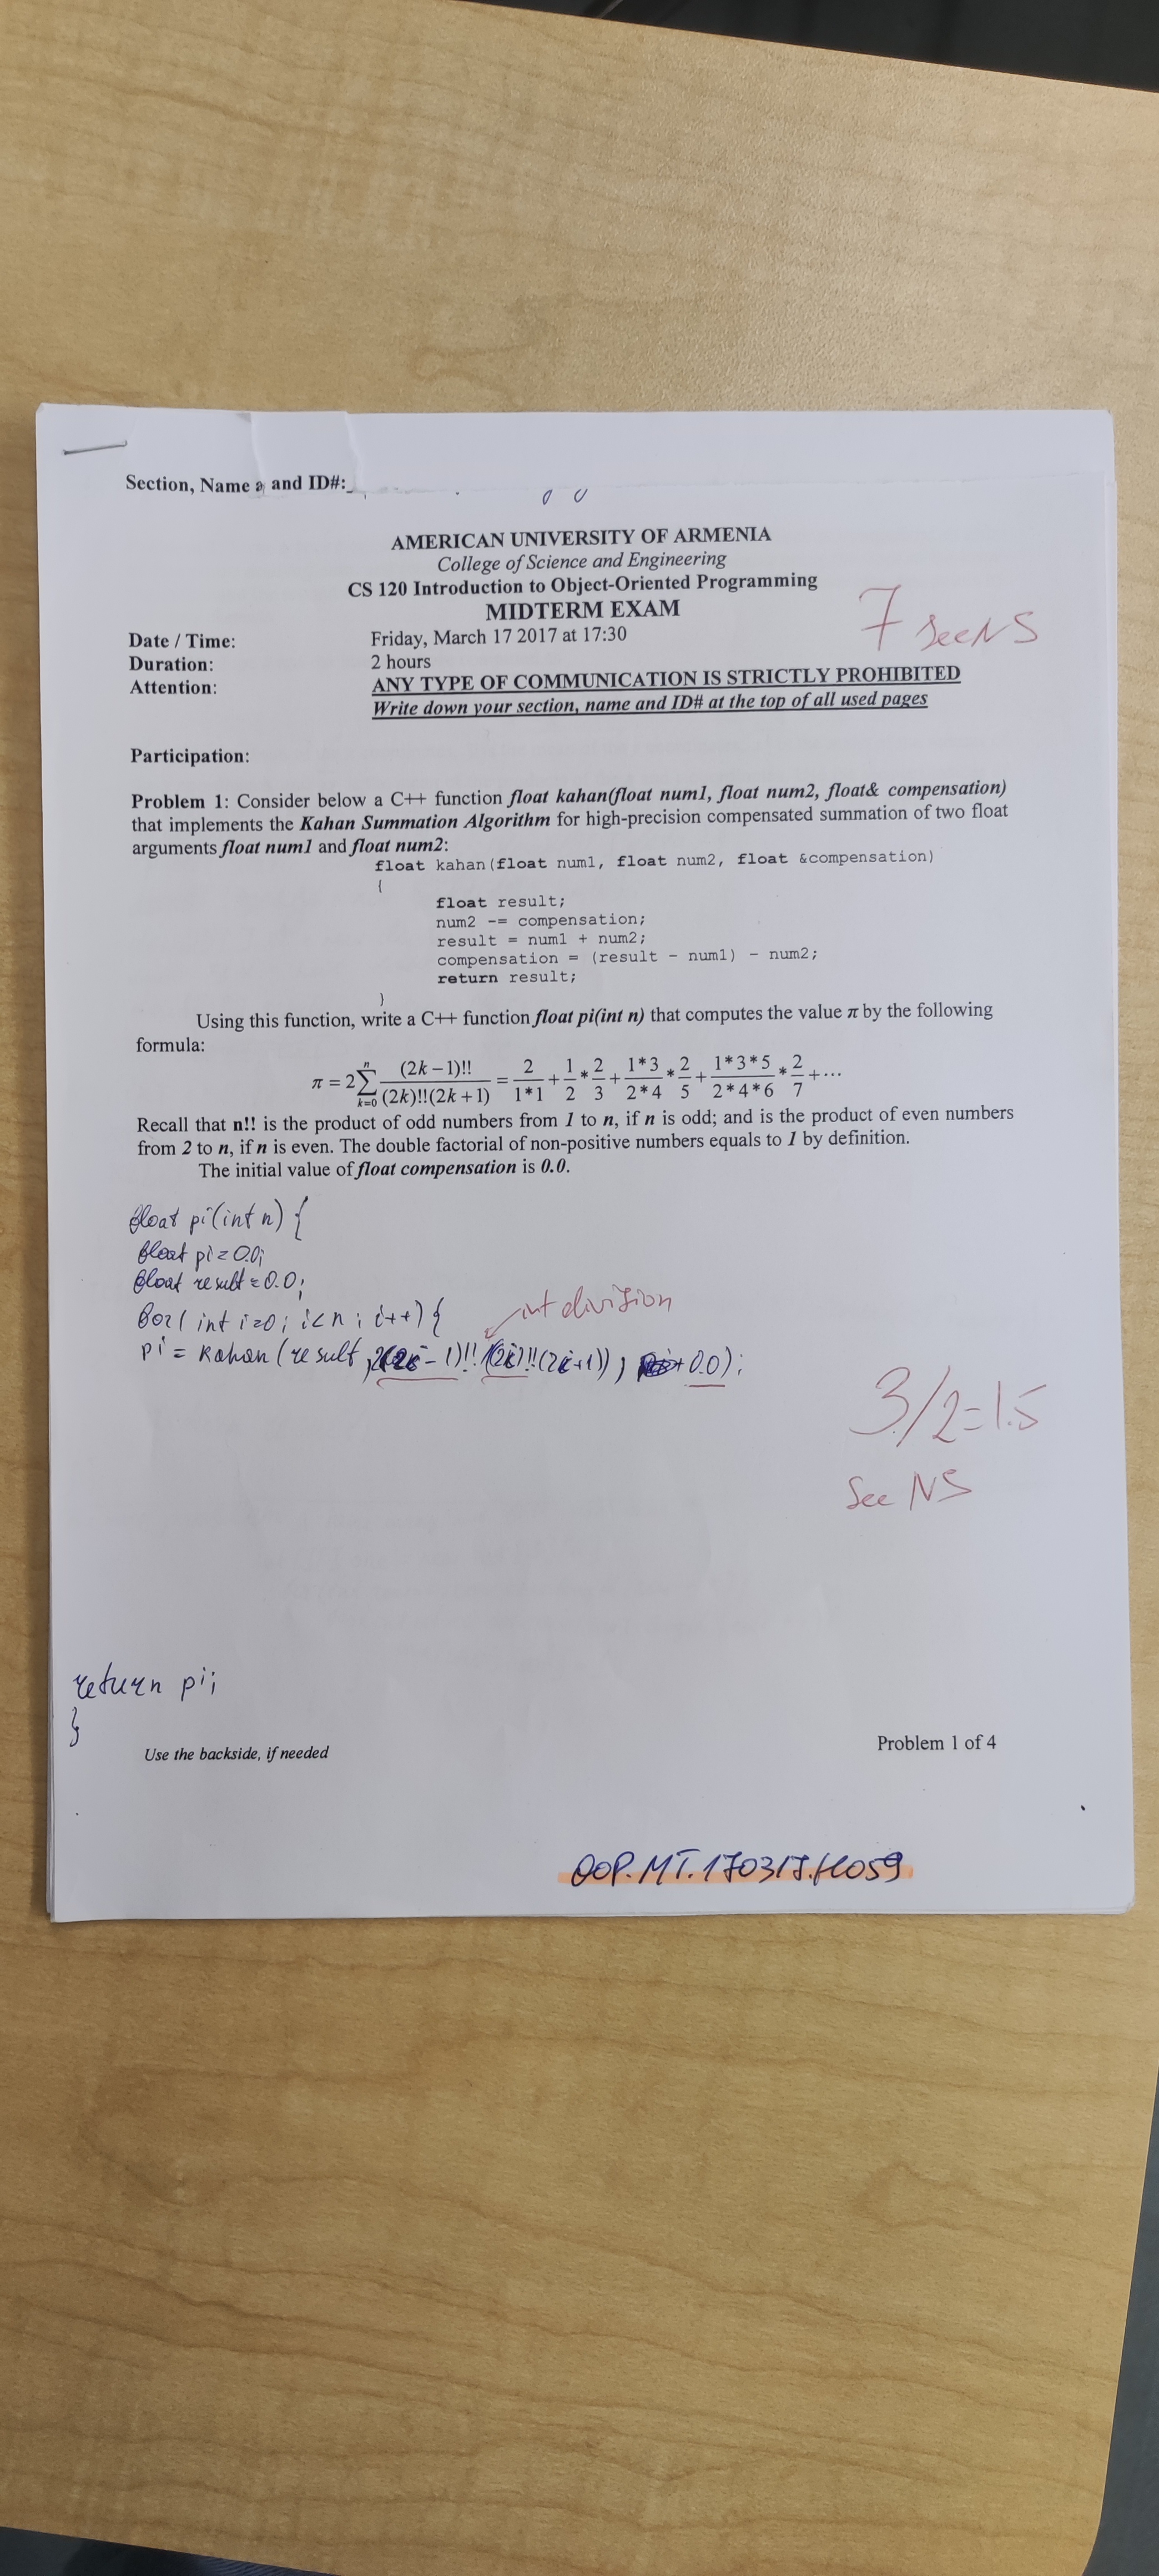 Section, Name a and ID#:
AMERICAN UNIVERSITY OF ARMENIA
College of Science and Engineering
CS 120 Introduction to Object-Oriented Programming
MIDTERM EXAM
7 See NS
Date / Time: Friday, March 17 2017 at 17:30
Duration: 2 hours
Attention: ANY TYPE OF COMMUNICATION IS STRICTLY PROHIBITED
Write down your section, name and ID# at the top of all used pages
Participation:
Problem 1: Consider below a C++ function float kahan(float num1, float num2, float& compensation)
that implements the Kahan Summation Algorithm for high-precision compensated summation of two float
arguments float num1 and float num2:
float kahan(float num1, float num2, float &compensation)
{
float result;
num2 -= compensation;
result = num1 + num2;
compensation = (result - num1) - num2;
return result;
}
Using this function, write a C++ function float pi(int n) that computes the value π by the following
formula:
π = 2∑_{k=0}^{n} (2k−1)!! / ((2k)!!(2k+1)) = 2/(1*1) + 1/2 * 2/3 + (1*3)/(2*4) * 2/5 + (1*3*5)/(2*4*6) * 2/7 + ···
Recall that n!! is the product of odd numbers from 1 to n, if n is odd; and is the product of even numbers
from 2 to n, if n is even. The double factorial of non-positive numbers equals to 1 by definition.
The initial value of float compensation is 0.0.
float pi(int n) {
float pi = 0.0;
float result = 0.0;
for( int i=0; i<n; i++) {
int division
pi = kahan (result, 2((2i - 1)!! / (2i)!!(2i+1)), 0.0);
3/2=1.5
See NS
return pi;
}
Use the backside, if needed
Problem 1 of 4